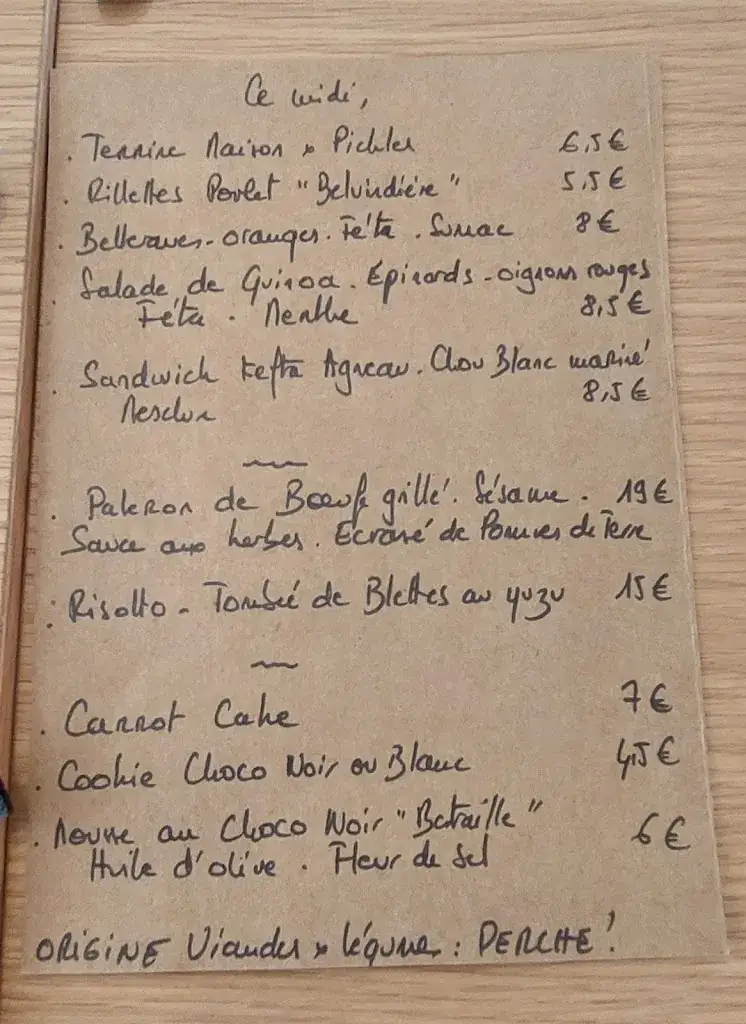 Ce midi,
. Terrine Maison & Pickles 6,5€
. Rillettes Poulet "Belvindière" 5,5€
. Betteraves - oranges . Féta . Sumac 8€
. Salade de Quinoa . Épinards - oignons rouges
Féta . Menthe 8,5€
. Sandwich Kefta Agneau . Chou Blanc mariné
Mesclun 8,5€
. Paleron de Bœuf grillé . Sésame . 19€
Sauce aux herbes . Ecrasé de Pommes de Terre
. Risotto - Tombée de Blettes au yuzu 15€
. Carrot Cake 7€
. Cookie Choco Noir ou Blanc 4,5€
. Mousse au Choco Noir "Bataille" 6€
Huile d'olive . Fleur de Sel
ORIGINE Viandes & légumes : PERCHE !